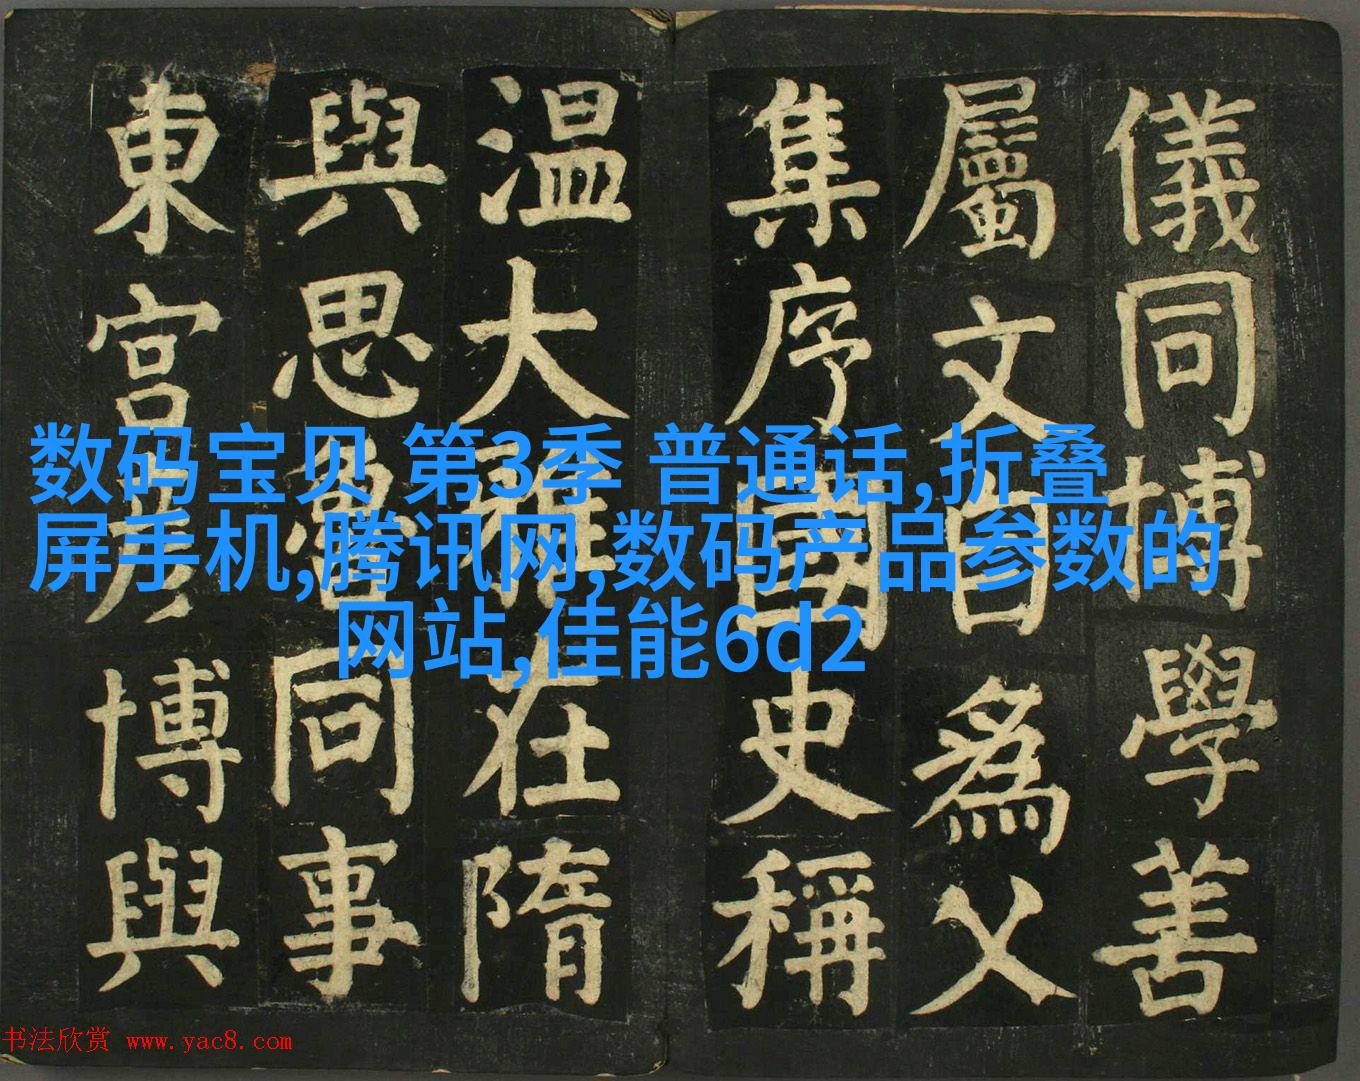 儀同博學善
屬文自為父
集序國史稱
温大雅在隋
與思魯同事
東宮彥博與
数码宝贝 第3季 普通话,折叠
屏手机,腾讯网,数码产品参数的
网站,佳能6d2
书法欣赏 www.yac8.com